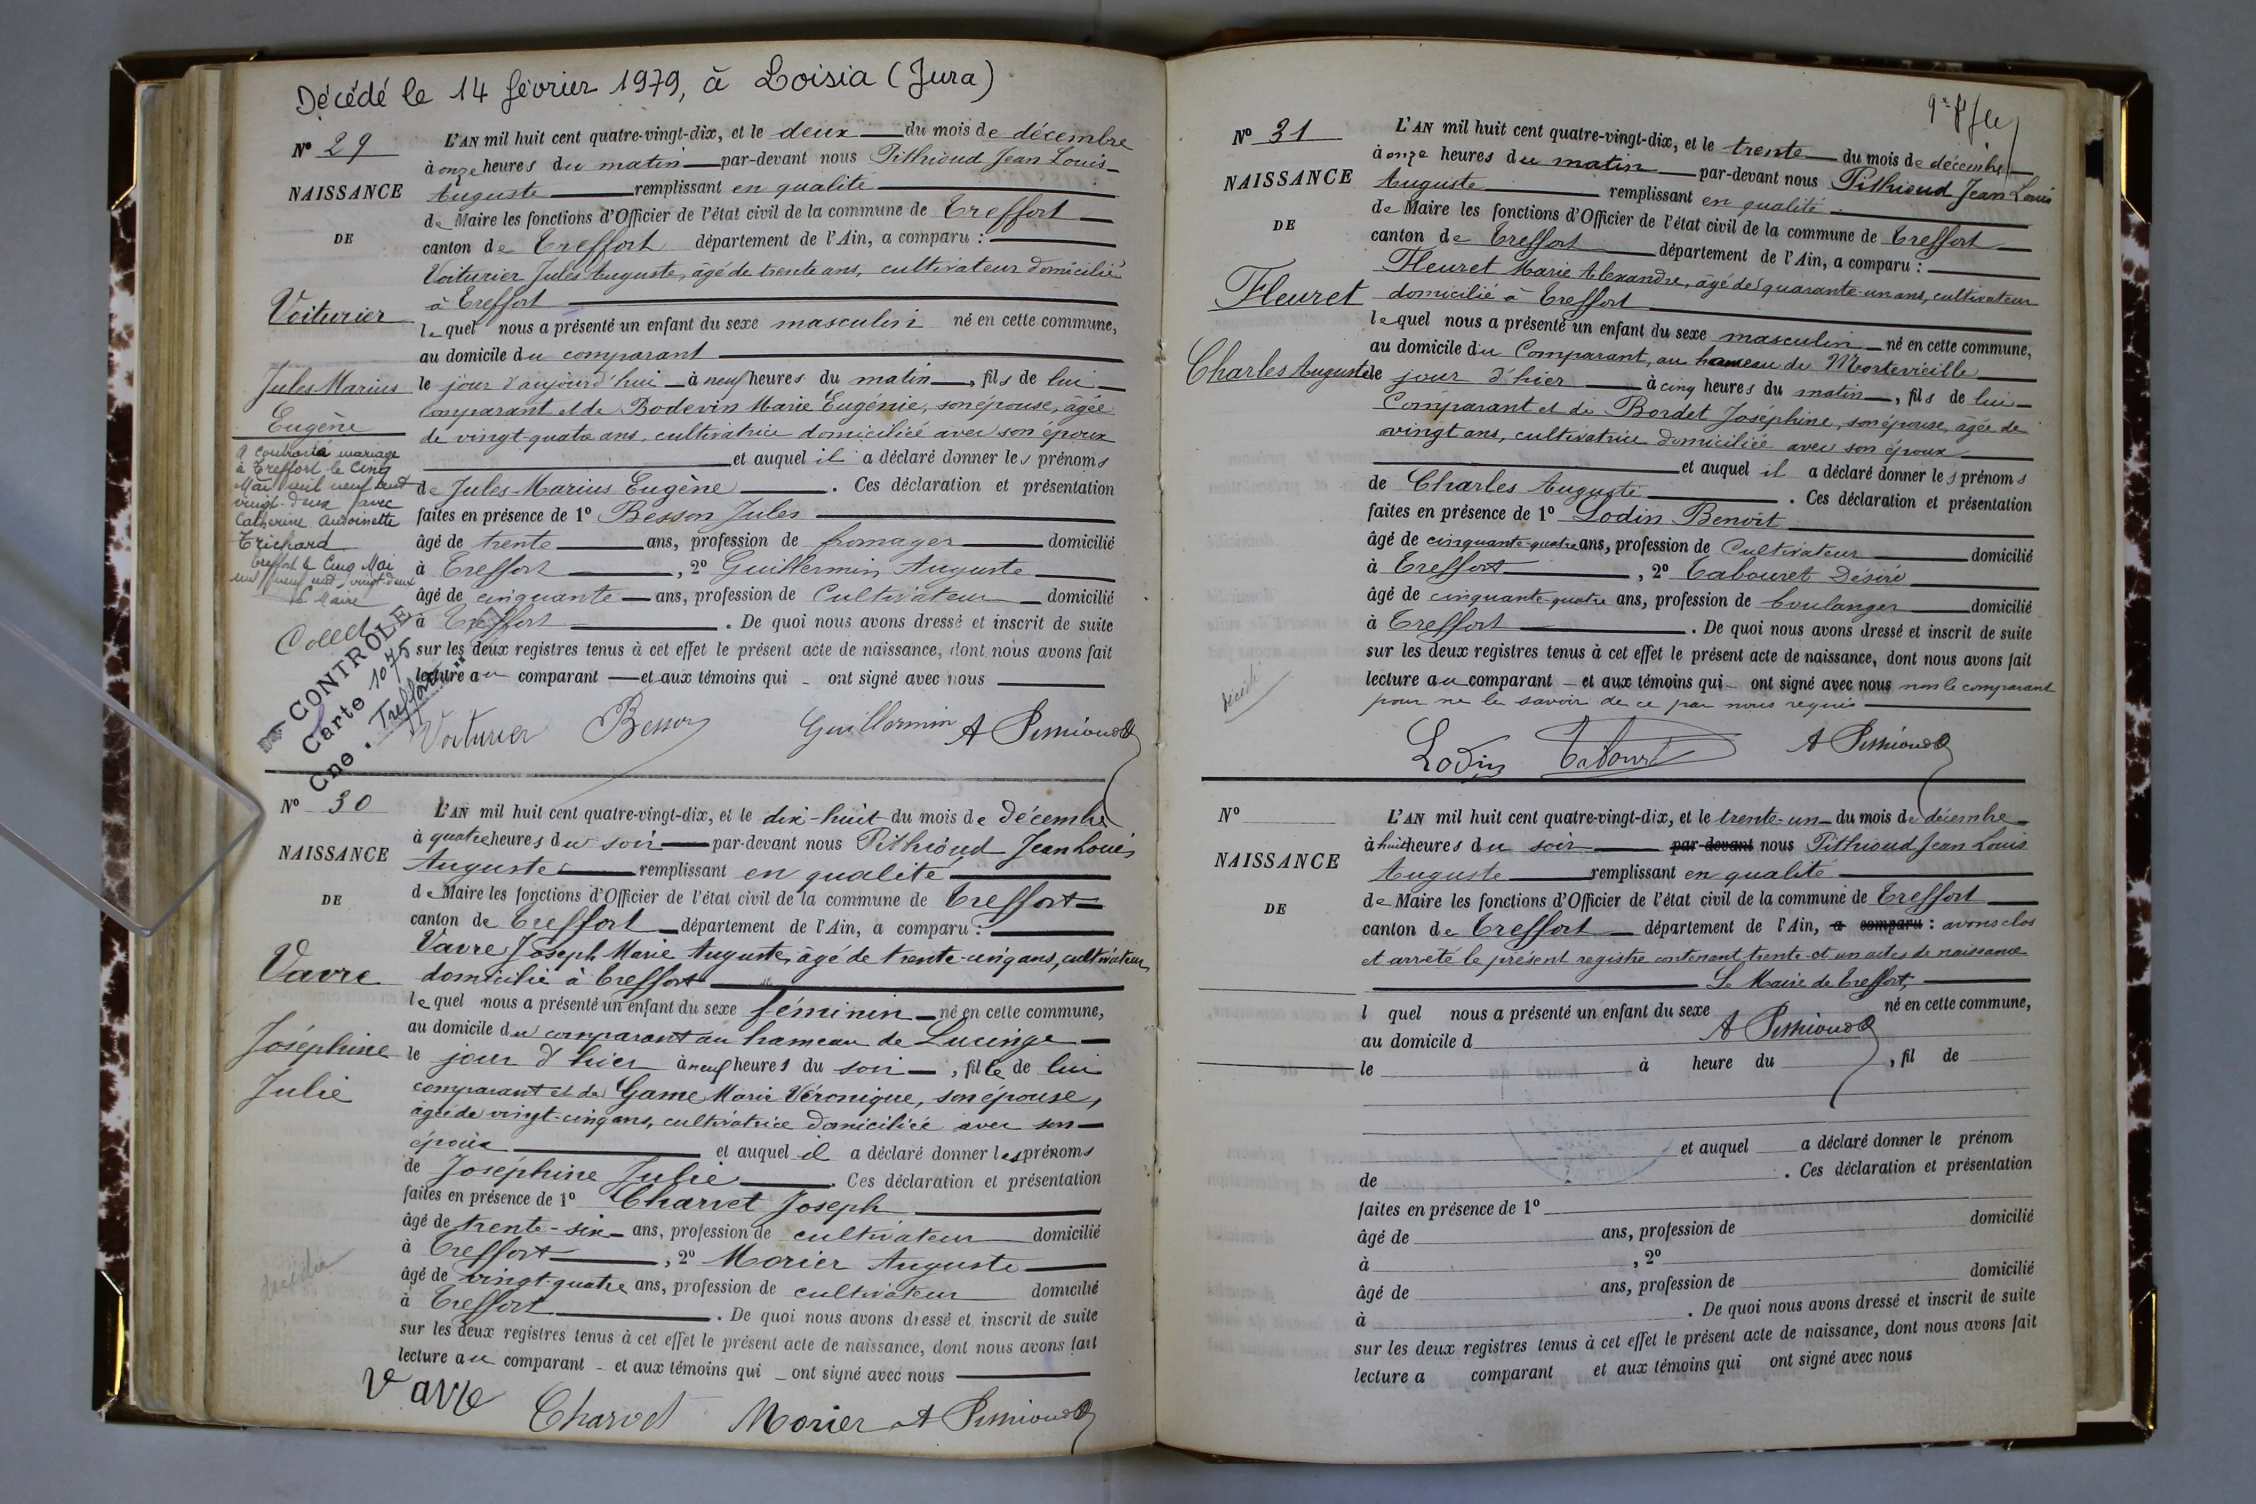 Décédé le 14 février 1979, à Loisia (Jura)
Nº 29
NAISSANCE
DE
Voiturier
Jules Marius
Eugène
A contracté mariage
à Treffort le cinq
Mai mil neuf cent
vingt-deux avec
Catherine Antoinette
Trichard
Treffort le cinq Mai
mil neuf cent vingt-deux
Le Maire
CONTROLE
Carte 1075
Cne. Treffort
L'AN mil huit cent quatre-vingt-dix, et le deux du mois de décembre
à onze heures du matin par-devant nous Pithioud Jean Louis
Auguste remplissant en qualité
de Maire les fonctions d'Officier de l'état civil de la commune de Treffort
canton de Treffort département de l'Ain, a comparu :
Voiturier Jules Auguste, âgé de trente ans, cultivateur domicilié
à Treffort
lequel nous a présenté un enfant du sexe masculin né en cette commune,
au domicile du comparant
le jour d'aujourd'hui à neuf heures du matin, fils de lui
comparant et de Bodevin Marie Eugénie, son épouse, âgée
de vingt-quatre ans, cultivatrice domiciliée avec son époux
et auquel il a déclaré donner les prénoms
de Jules-Marius Eugène. Ces déclaration et présentation
faites en présence de 1º Besson Jules
âgé de trente ans, profession de fromager domicilié
à Treffort, 2º Guillermin Auguste
âgé de cinquante ans, profession de Cultivateur domicilié
à Treffort. De quoi nous avons dressé et inscrit de suite
sur les deux registres tenus à cet effet le présent acte de naissance, dont nous avons fait
lecture au comparant et aux témoins qui ont signé avec nous
Voiturier Besson Guillermin A Pithioud
Nº 30
NAISSANCE
DE
Vavre
Joséphine
Julie
décédée
L'AN mil huit cent quatre-vingt-dix, et le dix-huit du mois de décembre
à quatre heures du soir par-devant nous Pithioud Jean Louis
Auguste remplissant en qualité
de Maire les fonctions d'Officier de l'état civil de la commune de Treffort
canton de Treffort département de l'Ain, a comparu :
Vavre Joseph Marie Auguste, âgé de trente-cinq ans, cultivateur,
domicilié à Treffort
lequel nous a présenté un enfant du sexe féminin né en cette commune,
au domicile du comparant au hameau de Lucinge
le jour d'hier à neuf heures du soir, fille de lui
comparant et de Game Marie Véronique, son épouse,
âgée de vingt-cinq ans, cultivatrice domiciliée avec son
époux et auquel il a déclaré donner les prénoms
de Joséphine Julie. Ces déclaration et présentation
faites en présence de 1º Charvet Joseph
âgé de trente-six ans, profession de cultivateur domicilié
à Treffort, 2º Morier Auguste
âgé de vingt-quatre ans, profession de cultivateur domicilié
à Treffort. De quoi nous avons dressé et inscrit de suite
sur les deux registres tenus à cet effet le présent acte de naissance, dont nous avons fait
lecture au comparant et aux témoins qui ont signé avec nous
Vavre Charvet Morier A Pithioud
Nº 31
NAISSANCE
DE
Fleuret
Charles Auguste
décédé
L'AN mil huit cent quatre-vingt-dix, et le trente du mois de décembre
à onze heures du matin par-devant nous Pithioud Jean Louis
Auguste remplissant en qualité
de Maire les fonctions d'Officier de l'état civil de la commune de Treffort
canton de Treffort département de l'Ain, a comparu :
Fleuret Marie Alexandre, âgé de quarante-un ans, cultivateur
domicilié à Treffort
lequel nous a présenté un enfant du sexe masculin né en cette commune,
au domicile du Comparant, au hameau de Montevieille
le jour d'hier à cinq heures du matin, fils de lui
Comparant et de Bordet Joséphine, son épouse, âgée de
vingt ans, cultivatrice domiciliée avec son époux
et auquel il a déclaré donner les prénoms
de Charles Auguste. Ces déclaration et présentation
faites en présence de 1º Lodin Benoît
âgé de cinquante-quatre ans, profession de Cultivateur domicilié
à Treffort, 2º Tabouret Désiré
âgé de cinquante-quatre ans, profession de boulanger domicilié
à Treffort. De quoi nous avons dressé et inscrit de suite
sur les deux registres tenus à cet effet le présent acte de naissance, dont nous avons fait
lecture au comparant et aux témoins qui ont signé avec nous non le comparant
pour ne le savoir de ce par nous requis
Lodin Tabouret A Pithioud
Nº
NAISSANCE
DE
L'AN mil huit cent quatre-vingt-dix, et le trente-un du mois de décembre
à huit heures du soir par-devant nous Pithioud Jean Louis
Auguste remplissant en qualité
de Maire les fonctions d'Officier de l'état civil de la commune de Treffort
canton de Treffort département de l'Ain, a comparu : avons clos
et arrêté le présent registre contenant trente et un actes de naissance
Le Maire de Treffort,
l quel nous a présenté un enfant du sexe né en cette commune,
A Pithioud
au domicile d
le à heure du , fil de
et auquel a déclaré donner le prénom
de . Ces déclaration et présentation
faites en présence de 1º
âgé de ans, profession de domicilié
à , 2º
âgé de ans, profession de domicilié
à . De quoi nous avons dressé et inscrit de suite
sur les deux registres tenus à cet effet le présent acte de naissance, dont nous avons fait
lecture a comparant et aux témoins qui ont signé avec nous